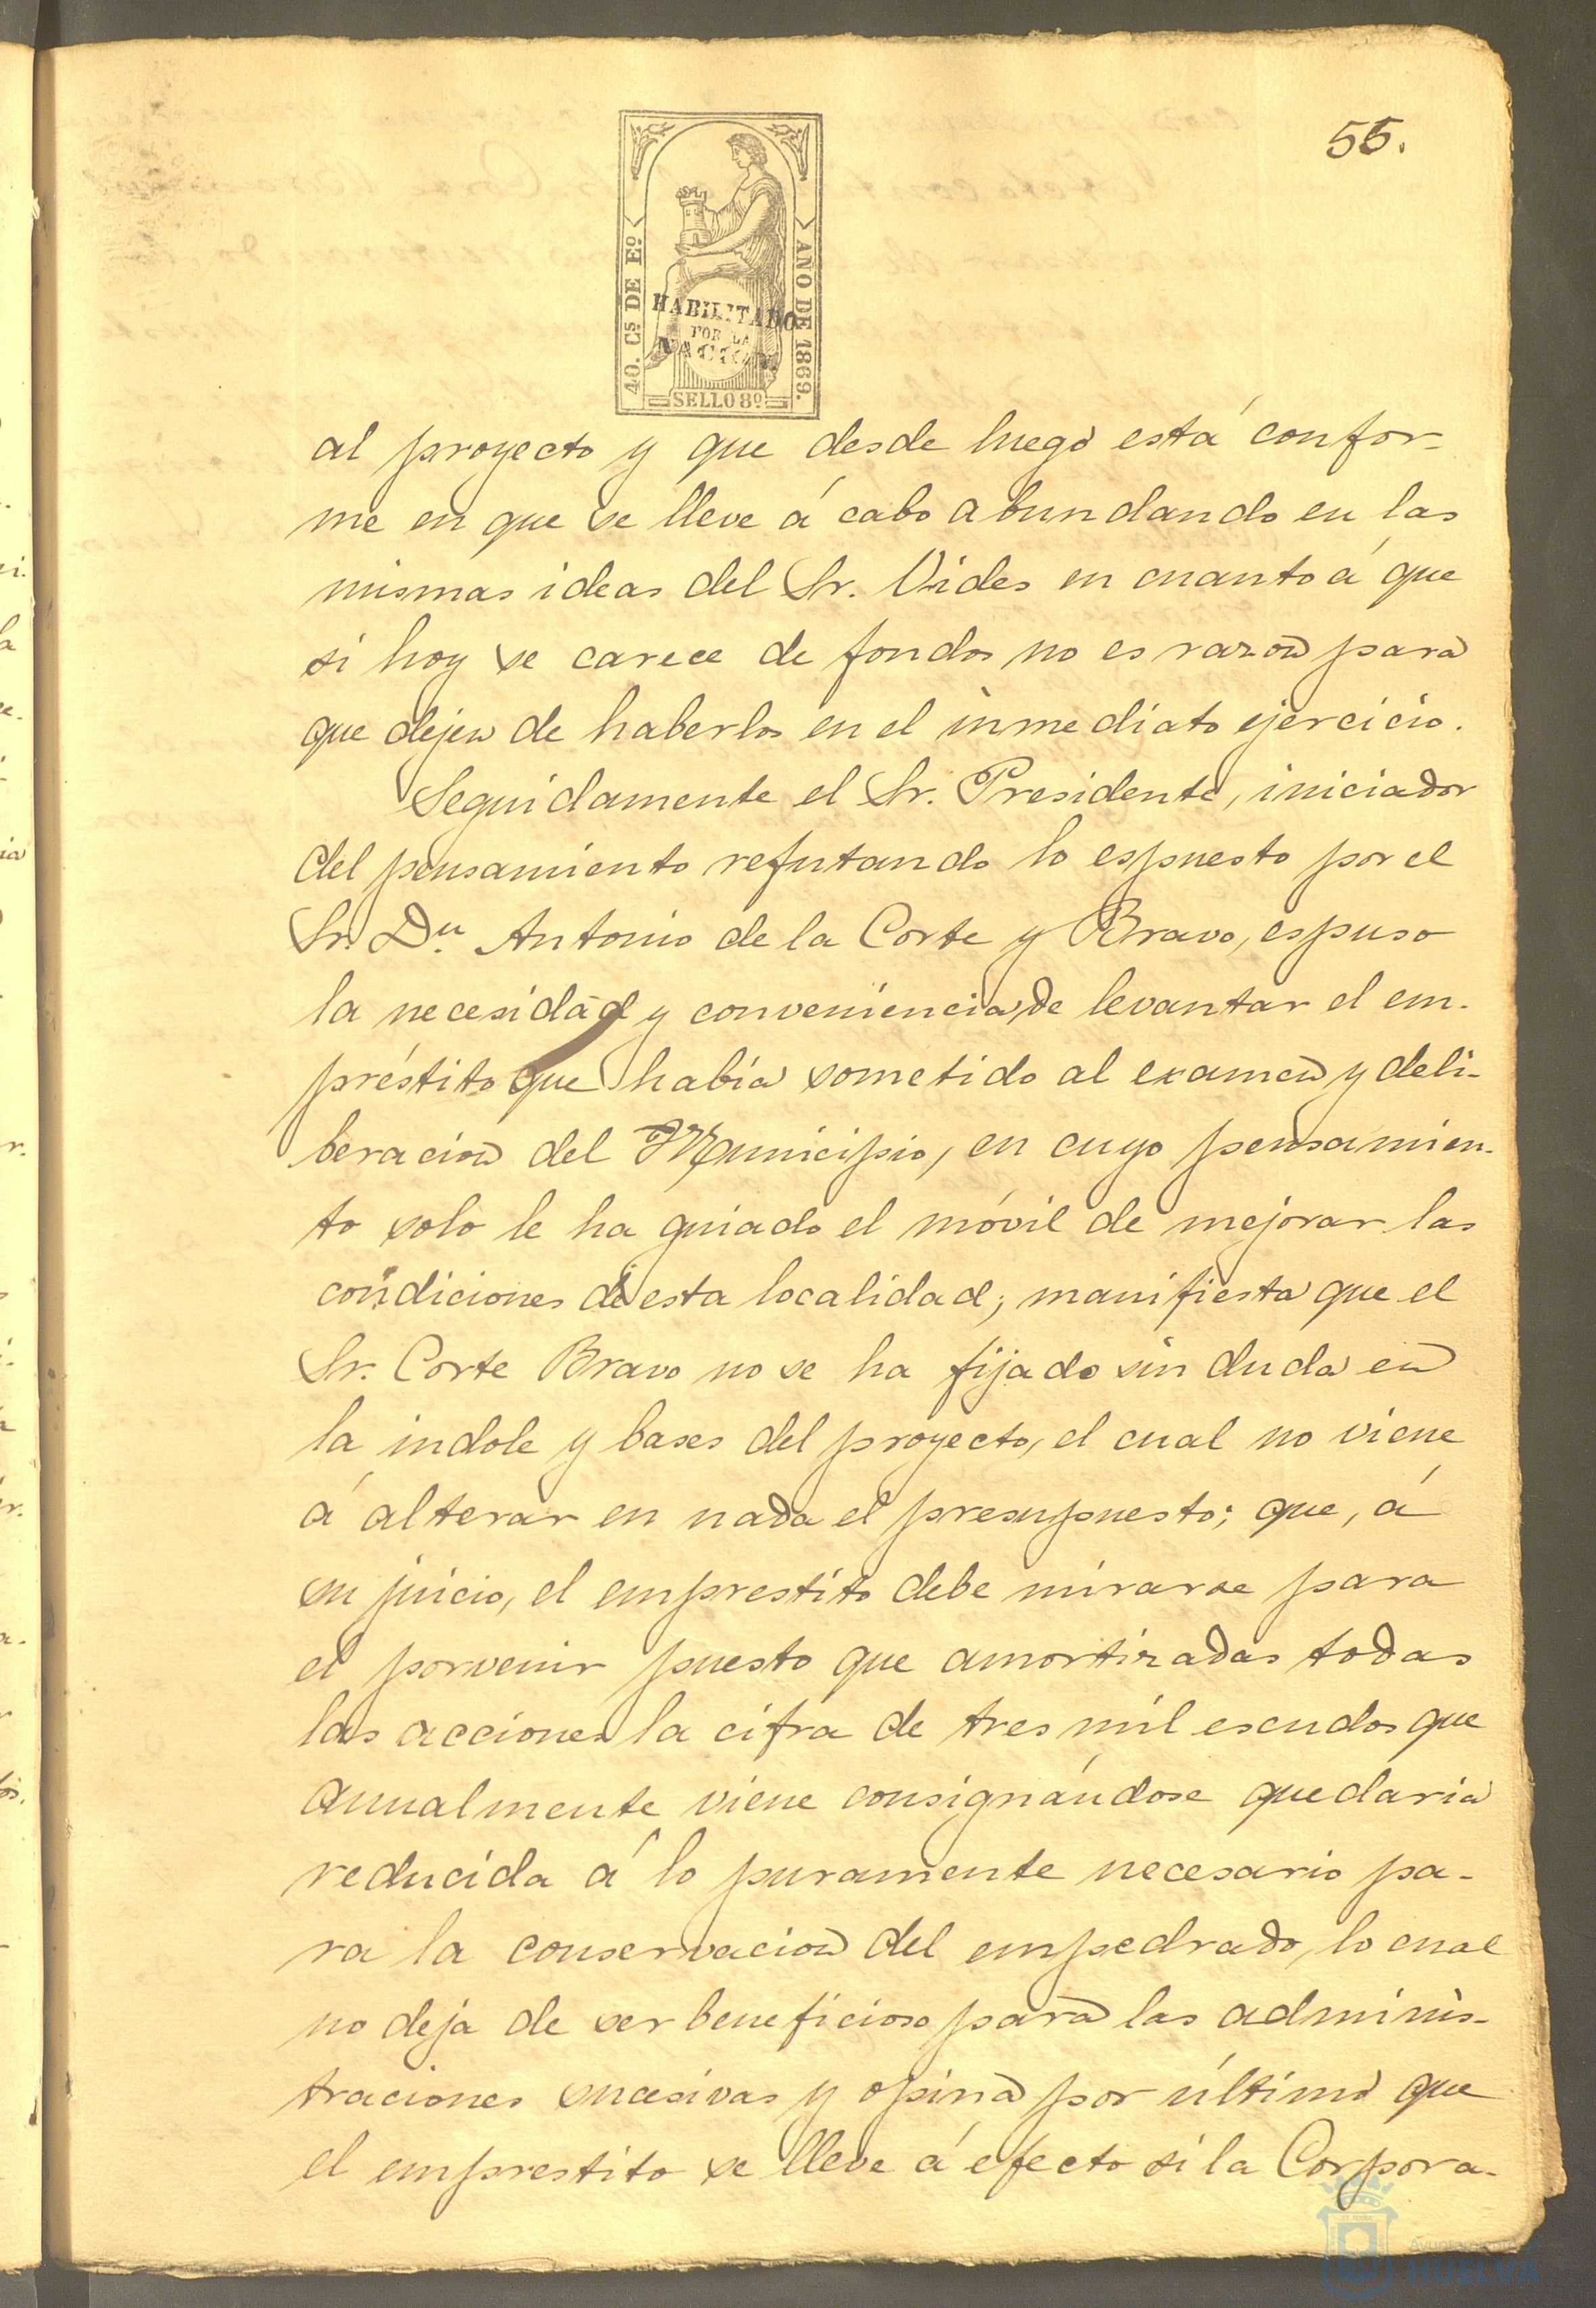 55.
40. Cs DE Eo
AÑO DE 1869.
HABILITADO
POR LA
NACION.
SELLO 8º
al proyecto y que desde luego está confor-
me en que se lleve á cabo abundando en las
mismas ideas del Sr. Vides en cuanto á que
si hoy se carece de fondos no es razon para
que dejen de haberlos en el inmediato ejercicio.
Seguidamente el Sr. Presidente, iniciador
del pensamiento refutando lo espuesto por el
Sr. Dn. Antonio de la Corte y Bravo, espuso
la necesidad y conveniencia de levantar el em-
préstito que habia sometido al examen y deli-
beracion del Municipio, en cuyo pensamien-
to solo le ha guiado el móvil de mejorar las
condiciones de esta localidad; manifiesta que el
Sr. Corte Bravo no se ha fijado sin duda en
la indole y bases del proyecto, el cual no viene
á alterar en nada el presupuesto; que, á
su juicio, el emprestito debe mirarse para
el porvenir puesto que amortizadas todas
las acciones la cifra de tres mil escudos que
anualmente viene consignándose quedaria
reducida á lo puramente necesario pa-
ra la conservacion del empedrado, lo cual
no deja de ser beneficioso para las adminis-
traciones sucesivas y opina por último que
el emprestito se lleve á efecto si la Corpora-
Ayuntamiento de
HUELVA